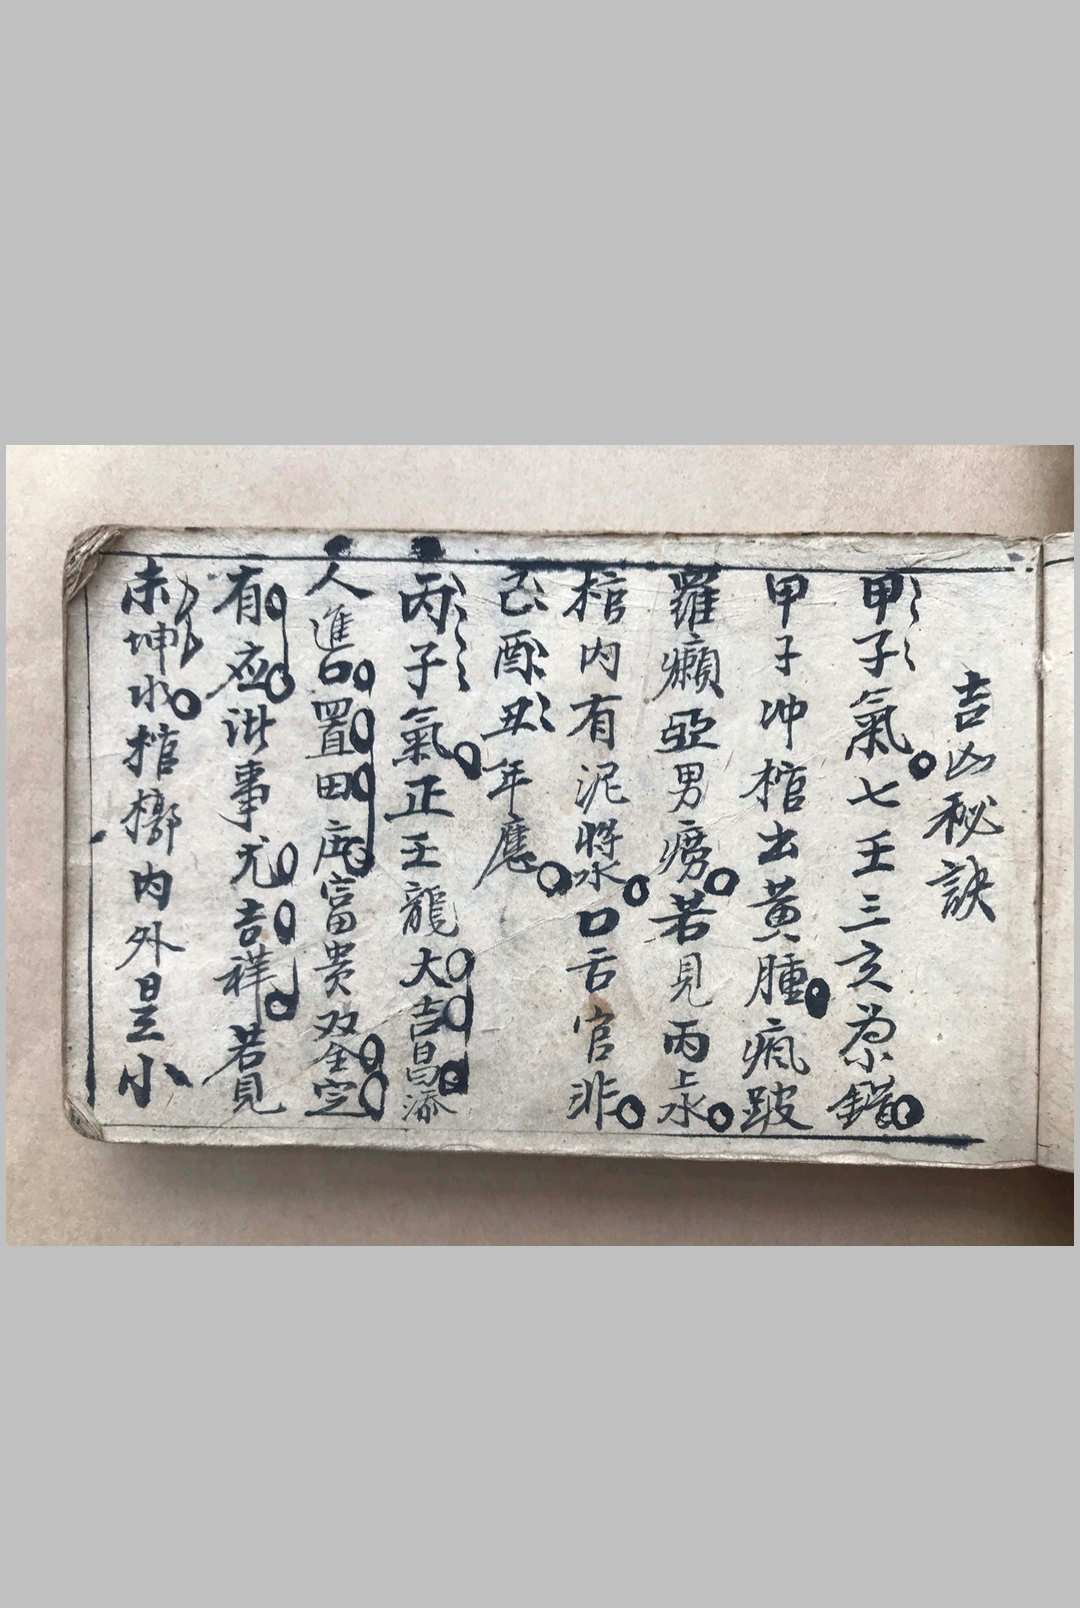 吉凶秘訣
甲子氣七壬三亥為錯
甲子冲棺出黃腫瘋跛
羅癩亞男癆若見丙上水
棺内有泥將水口舌官非
己酉丑年應
丙子氣正壬龍大吉昌添
人進口置田庄富贵双全定
有应訟事尤吉祥若見
未坤水棺槨内外是小